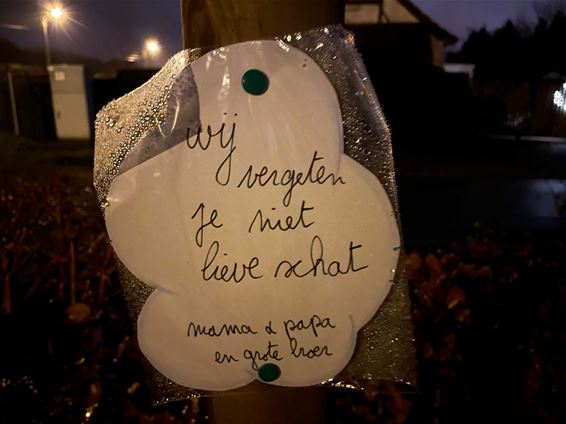 wij
vergeten
je niet
lieve schat
mama & papa
en grote broer